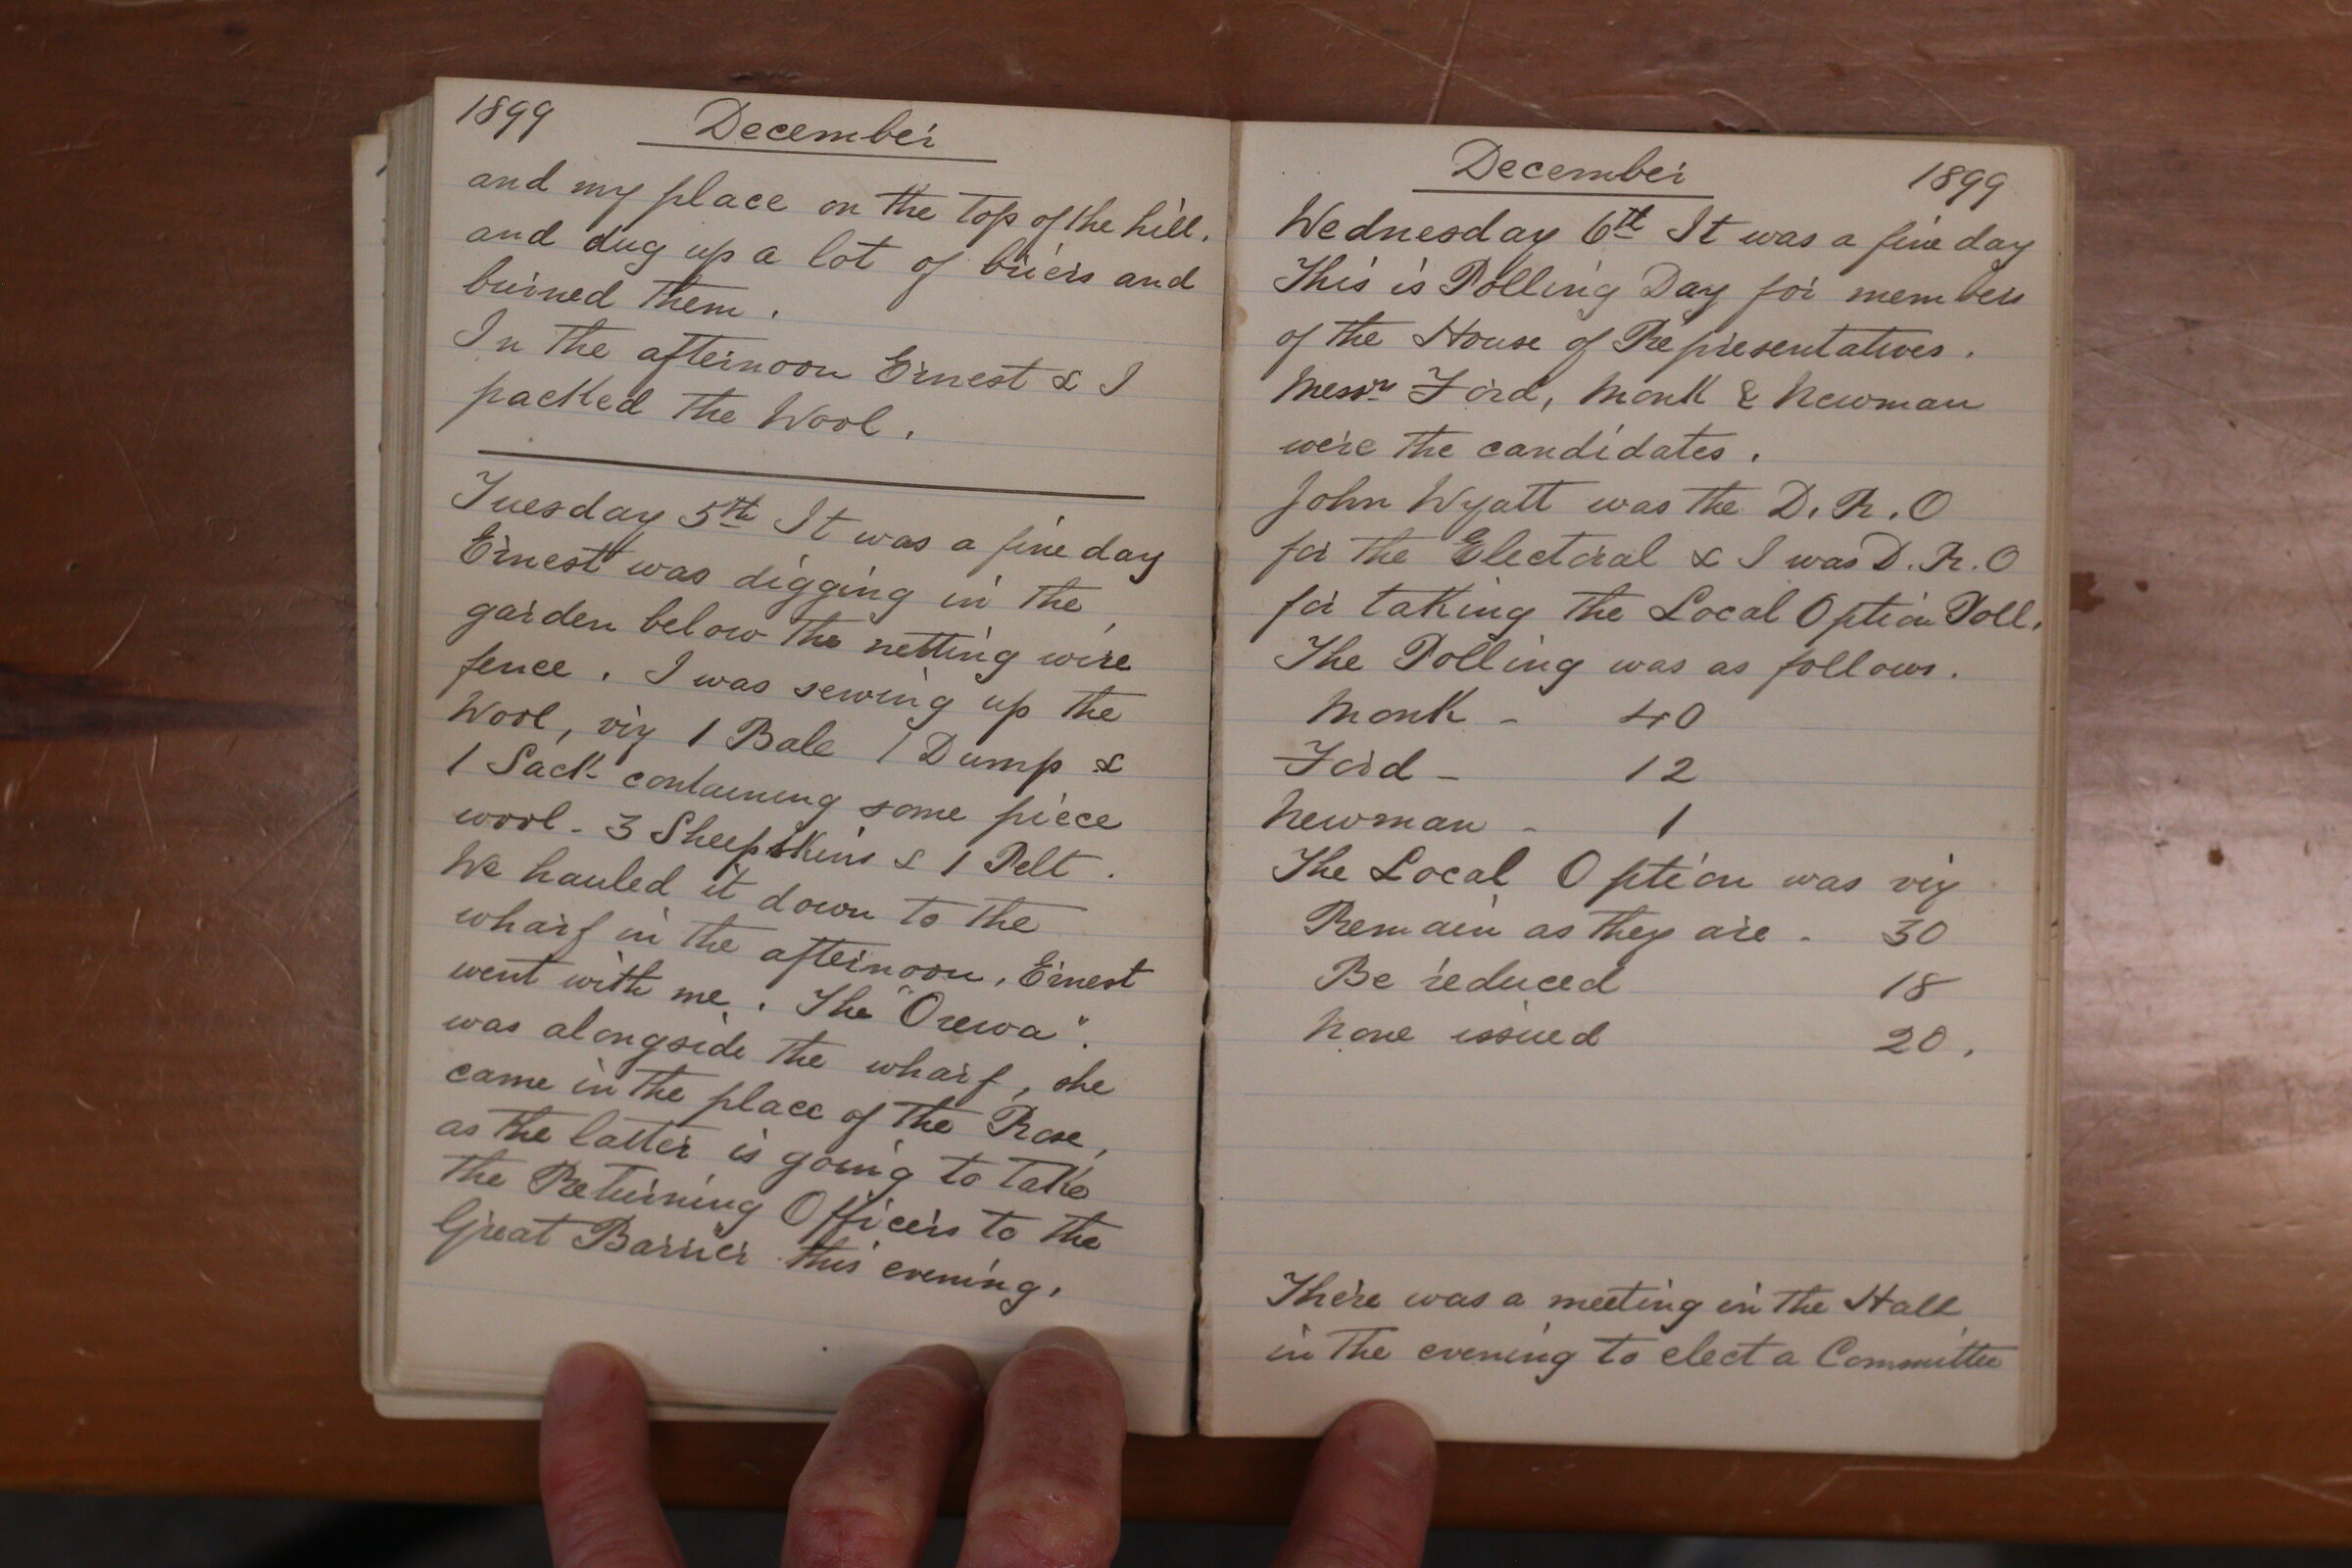 1899 December
and my place on the top of the hill.
and dug up a lot of briers and
burned them.
In the afternoon Ernest & I
packed the Wool.
Tuesday 5th It was a fine day
Ernest was digging in the
garden below the netting wire
fence. I was sewing up the
Wool, viz 1 Bale 1 Dump &
1 Sack containing some piece
wool - 3 Sheepskins & 1 Pelt.
We hauled it down to the
wharf in the afternoon, Ernest
went with me. The "Orewa".
was alongside the wharf, she
came in the place of the Rose,
as the latter is going to take
the Returning Officers to the
Great Barrier this evening.
December 1899
Wednesday 6th It was a fine day
This is Polling Day for members
of the House of Representatives.
Messrs Ford, Monk & Newman
were the candidates.
John Wyatt was the D.R.O
for the Electoral & I was D.R.O
for taking the Local Option Poll.
The Polling was as follows.
Monk - 40
Ford - 12
Newman - 1
The Local Option was viz
Remain as they are - 30
Be reduced 18
None issued 20.
There was a meeting in the Hall
in the evening to elect a Committee